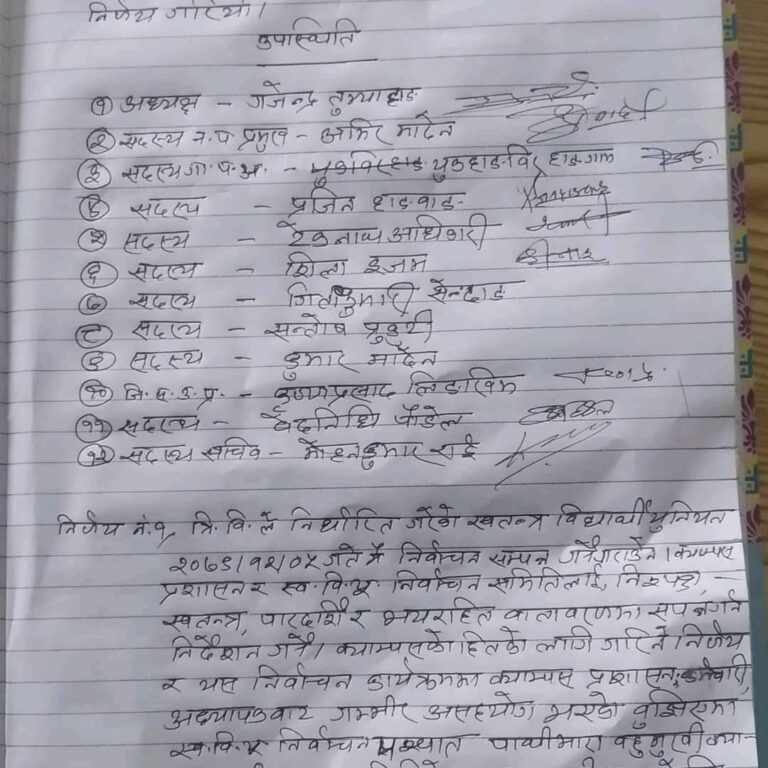 निर्णय गरियो।
उपस्थिति
१ अध्यक्ष - गजेन्द्र तुम्याहाङ
२ सदस्य न.पा प्रमुख - अमिर मादेन
३ सदस्य गा.पा.अ. -
४ सदस्य - प्रजित हाङवाङ
५ सदस्य - टेकनाथ अधिकारी
६ सदस्य - शिला इजम
७ सदस्य - जितकुमारी सेन्दाङ
८ सदस्य - सन्तोष प्रुकुटी
९ सदस्य - कुमार मादेन
१० जि.स.उ.प्र. - लिङखिम
११ सदस्य - वेदनिधि पौडेल
१२ सदस्य सचिव - मोहनकुमार राई
निर्णय नं.१, त्रि.वि.ले निर्धारित गरेको स्वतन्त्र विद्यार्थी युनियन
२०७९/१२/०५ गते नै निर्वाचन सम्पन्न क्याम्पस
प्रशासन र स्व.वि.यु. निर्वाचन समितिलाई, निष्पक्ष,
स्वतन्त्र, पारदर्शि र भयरहित वातावरणमा सम्पन्न गर्न
निर्देशन गर्ने। क्याम्पसको हितको लागि गरिने निर्णय
र यस निर्वाचन कार्यक्रममा क्याम्पस प्रशासन, कर्मचारी,
अध्यापकबाट गम्भीर असहयोग भएको बुझिएमा
स्व.वि.यु निर्वाचन पश्चात पाथीभरा बहुमुखी क्या-